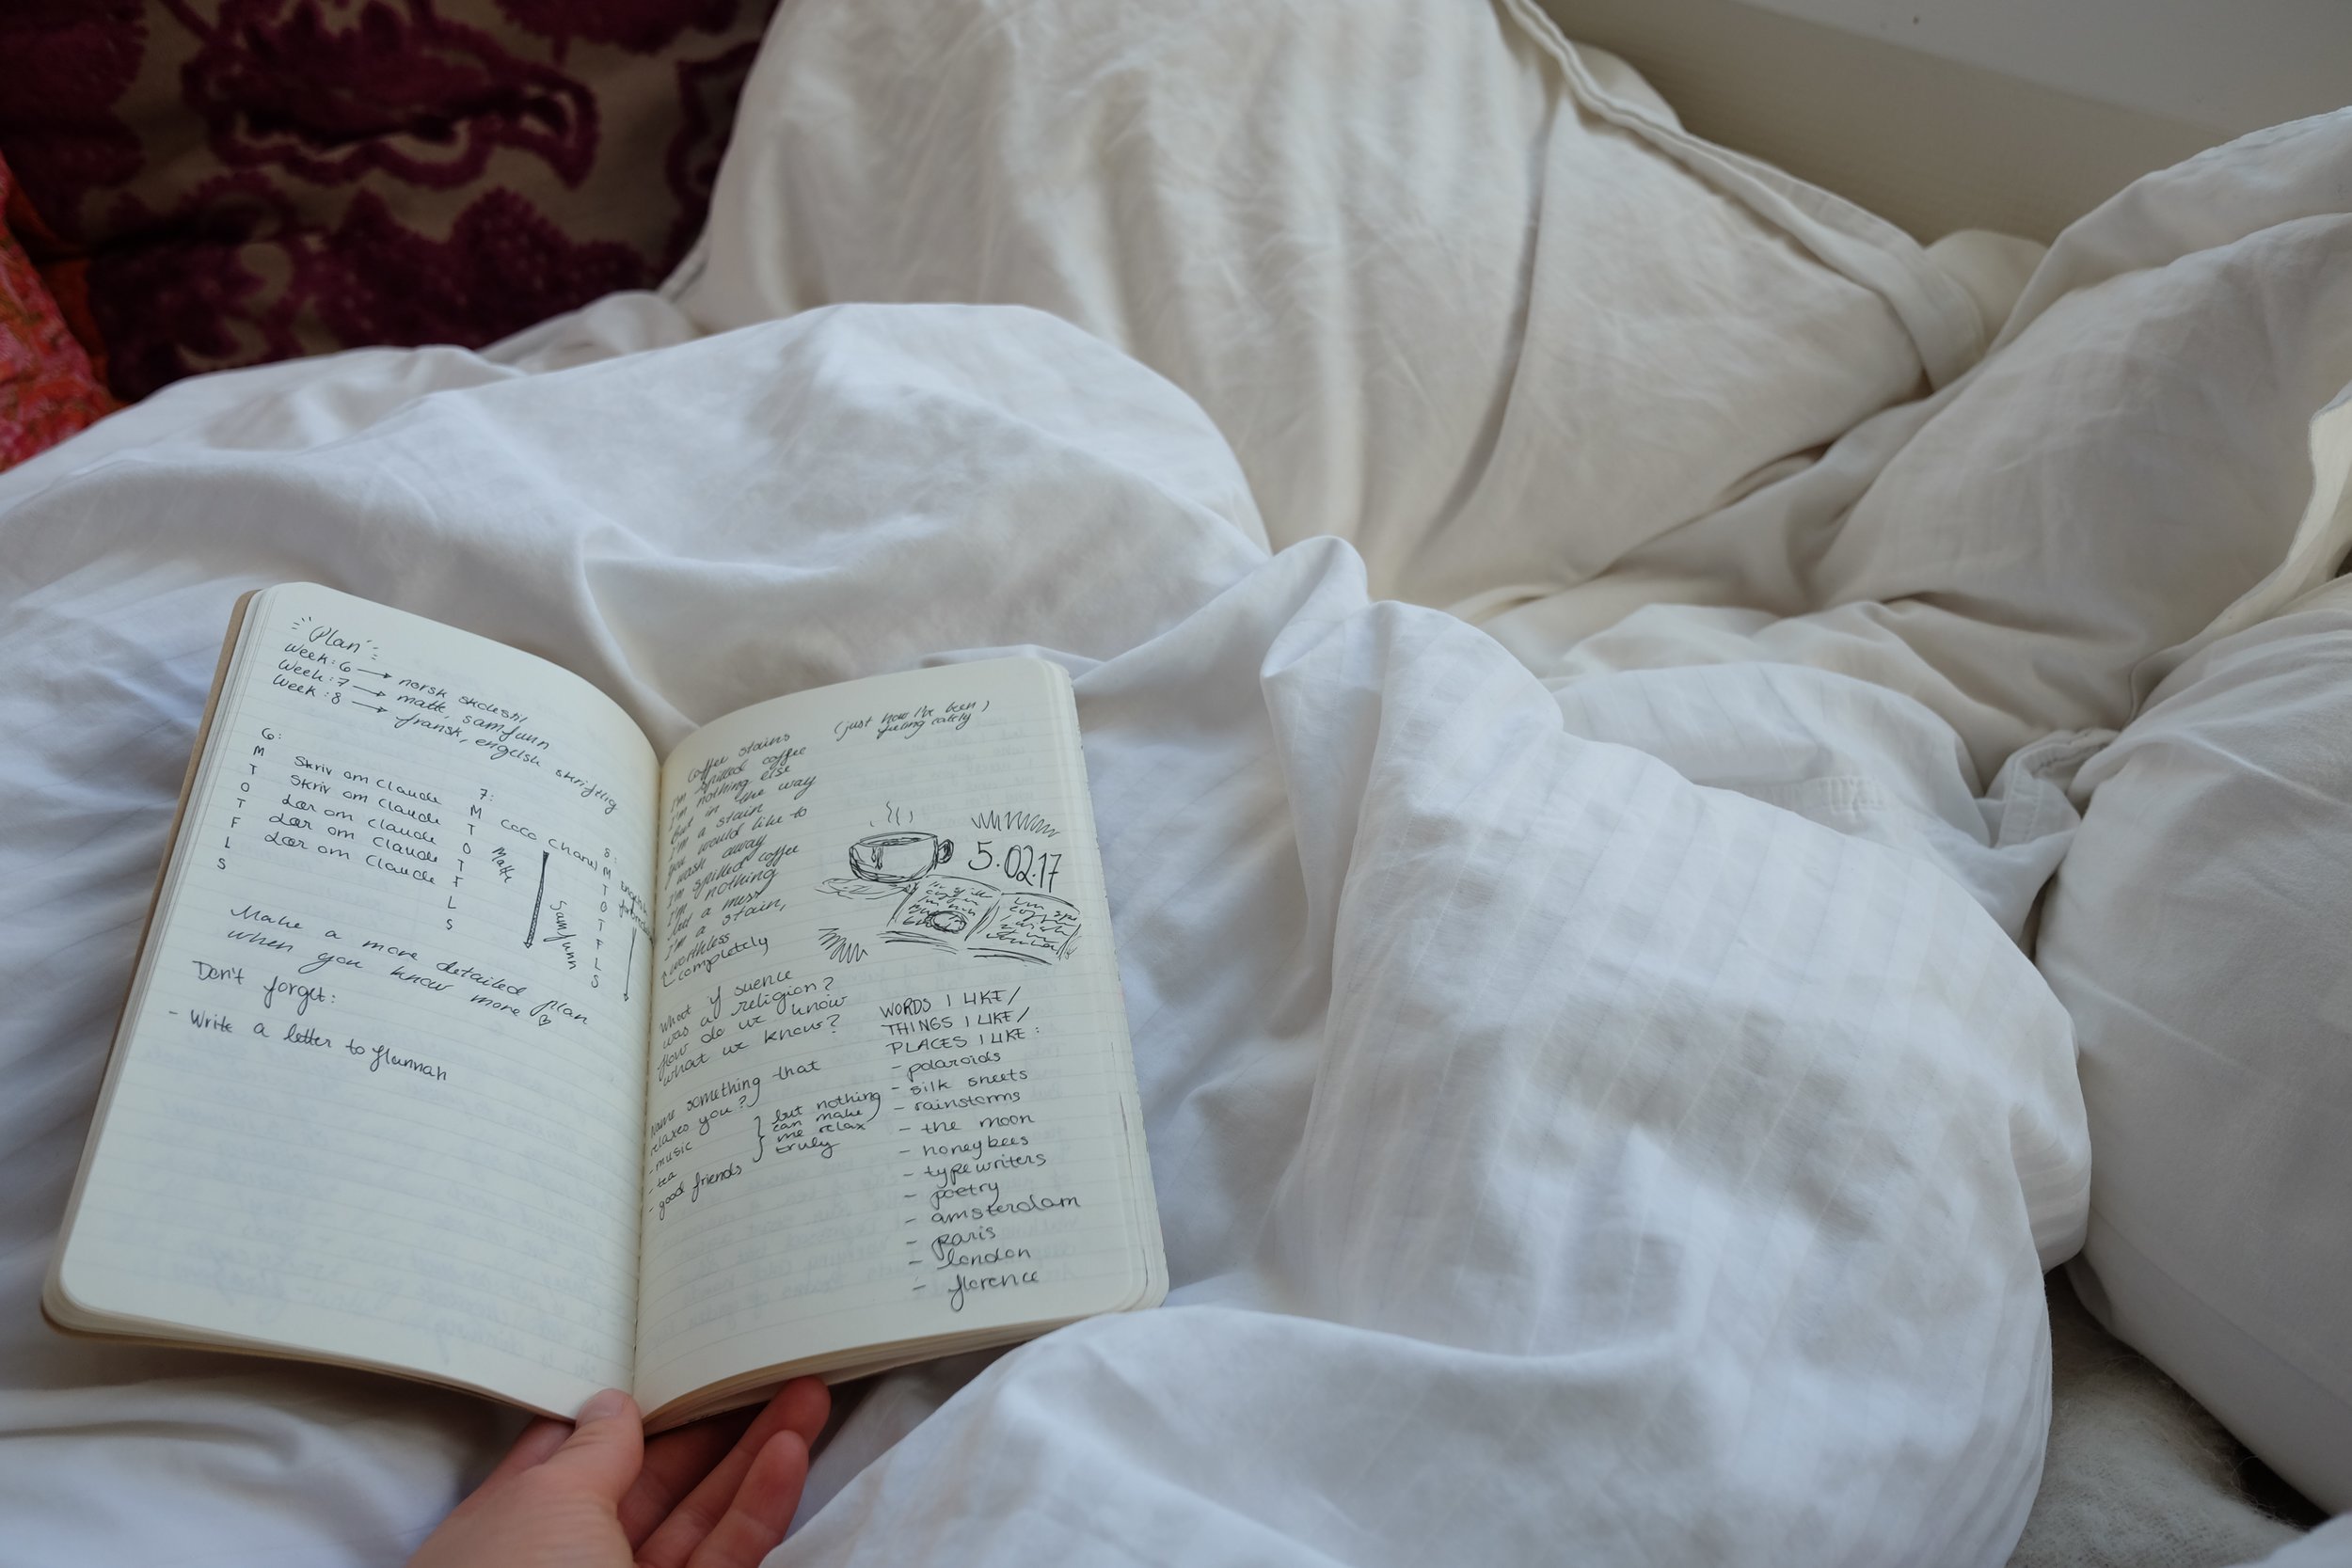 Plan
Week: 6 → norsk skolestil
Week: 7 → matte, samfunn
Week: 8 → fransk, engelsk skriftlig
6:
M Skriv om Claude
T Skriv om Claude
O Lær om Claude
T Lær om Claude
F Lær om Claude
L
S
7:
M Coco Chanel
T
O
T
F
L
S
Matte
Samfunn
8:
M
T
O
T
F
L
S
Make a more detailed plan
when you know more
Don't forget:
- Write a letter to Hannah
(just how I've been)
feeling lately
Coffee stains
I'm spilled coffee
I'm nothing else
But in the way
I'm a stain
you would like to
wash away
I'm spilled coffee
I'm nothing
but a mess
I'm a stain,
worthless
completely
5.02.17
What if silence
was a religion?
How do we know
what we know?
Name something that
relaxes you?
- music
- tea
- good friends
but nothing
can make
me relax
truly
WORDS I LIKE/
THINGS I LIKE/
PLACES I LIKE:
- polaroids
- silk sheets
- rainstorms
- the moon
- honeybees
- typewriters
- poetry
- amsterdam
- paris
- london
- florence